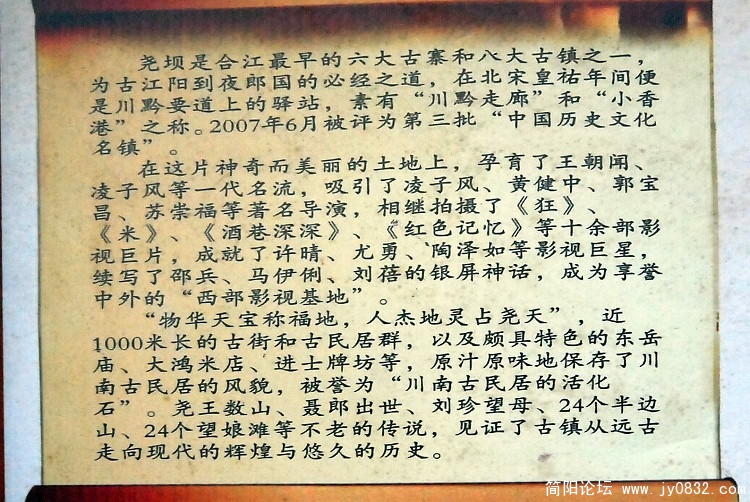 尧坝是合江最早的六大古寨和八大古镇之一，
为古江阳到夜郎国的必经之道，在北宋皇祐年间便
是川黔要道上的驿站，素有“川黔走廊”和“小香
港”之称。2007年6月被评为第三批“中国历史文化
名镇”。
在这片神奇而美丽的土地上，孕育了王朝闻、
凌子风等一代名流，吸引了凌子风、黄健中、郭宝
昌、苏崇福等著名导演，相继拍摄了《狂》、
《米》、《酒巷深深》、《红色记忆》等十余部影
视巨片，成就了许晴、尤勇、陶泽如等影视巨星，
续写了邵兵、马伊俐、刘蓓的银屏神话，成为享誉
中外的“西部影视基地”。
“物华天宝称福地，人杰地灵占尧天”，近
1000米长的古街和古民居群，以及颇具特色的东岳
庙、大鸿米店、进士牌坊等，原汁原味地保存了川
南古民居的风貌，被誉为“川南古民居的活化
石”。尧王数山、聂郎出世、刘珍望母、24个半边
山、24个望娘滩等不老的传说，见证了古镇从远古
走向现代的辉煌与悠久的历史。
简阳论坛 www.jy0832.com